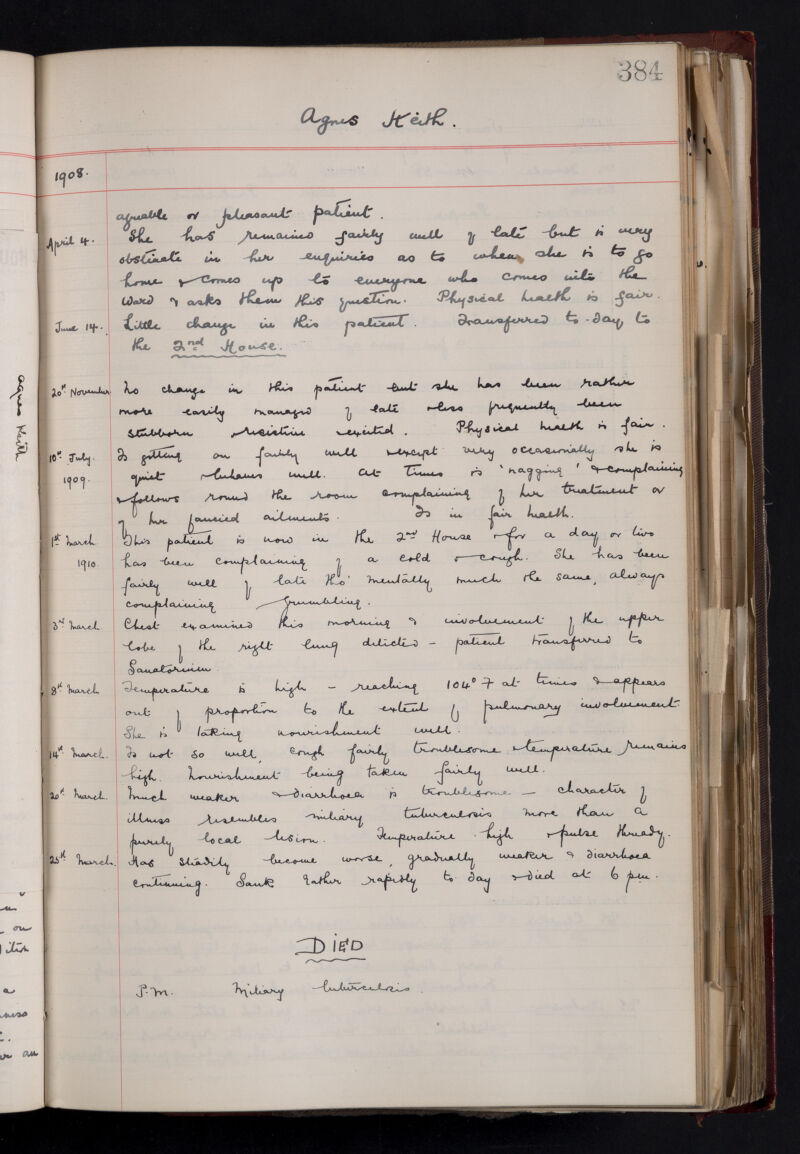 384
Agnes Keith.
1908.
agreeable or pleasant patient.
April 4. She has remained fairly well of late but is very
obstinate in her enquiries as to when she is to go
home & comes up to everyone who comes into the
ward & asks them this question. Physical health is fair.
June 14. Little change in this patient. Transferred to-day to
the 2nd House.
20th November No change in this patient but she has been rather
more easily managed of late & less frequently been
stubborn & resistive & excited. Physical health is fair.
10th July. Is getting on fairly well & except very occasionally she is
1909. quiet & behaves well. At times is 'nagging' & complaining
& follows round the room complaining of her treatment or
of her fancied ailments. Is in fair health.
1st March This patient is now in the 2nd House & for a day or two
1910. has been complaining of a cold & cough. She has been
fairly well of late tho' mentally much the same, always
complaining & grumbling.
3rd March Chest examined this morning & involvement of the upper
lobe of the right lung detected - patient transferred to
Sanatorium.
8th March Temperature is high - reaching 104° F at times & appears
out of proportion to the extent of pulmonary involvement.
She is taking nourishment well.
14th March. Is not so well, cough fairly troublesome & temperature remains
high. Nourishment being taken fairly well.
20th March. Much weaker & diarrhoea is troublesome - character of
illness resembles miliary tuberculosis more than a
purely local lesion. Temperature high & pulse thready.
25th March. Has steadily become worse, gradually weaker & diarrhoea
continuing. Sank rather rapidly to day & died at 6 pm.
DIED
P.M. Miliary tuberculosis.
Agnes Keith
on
a
an